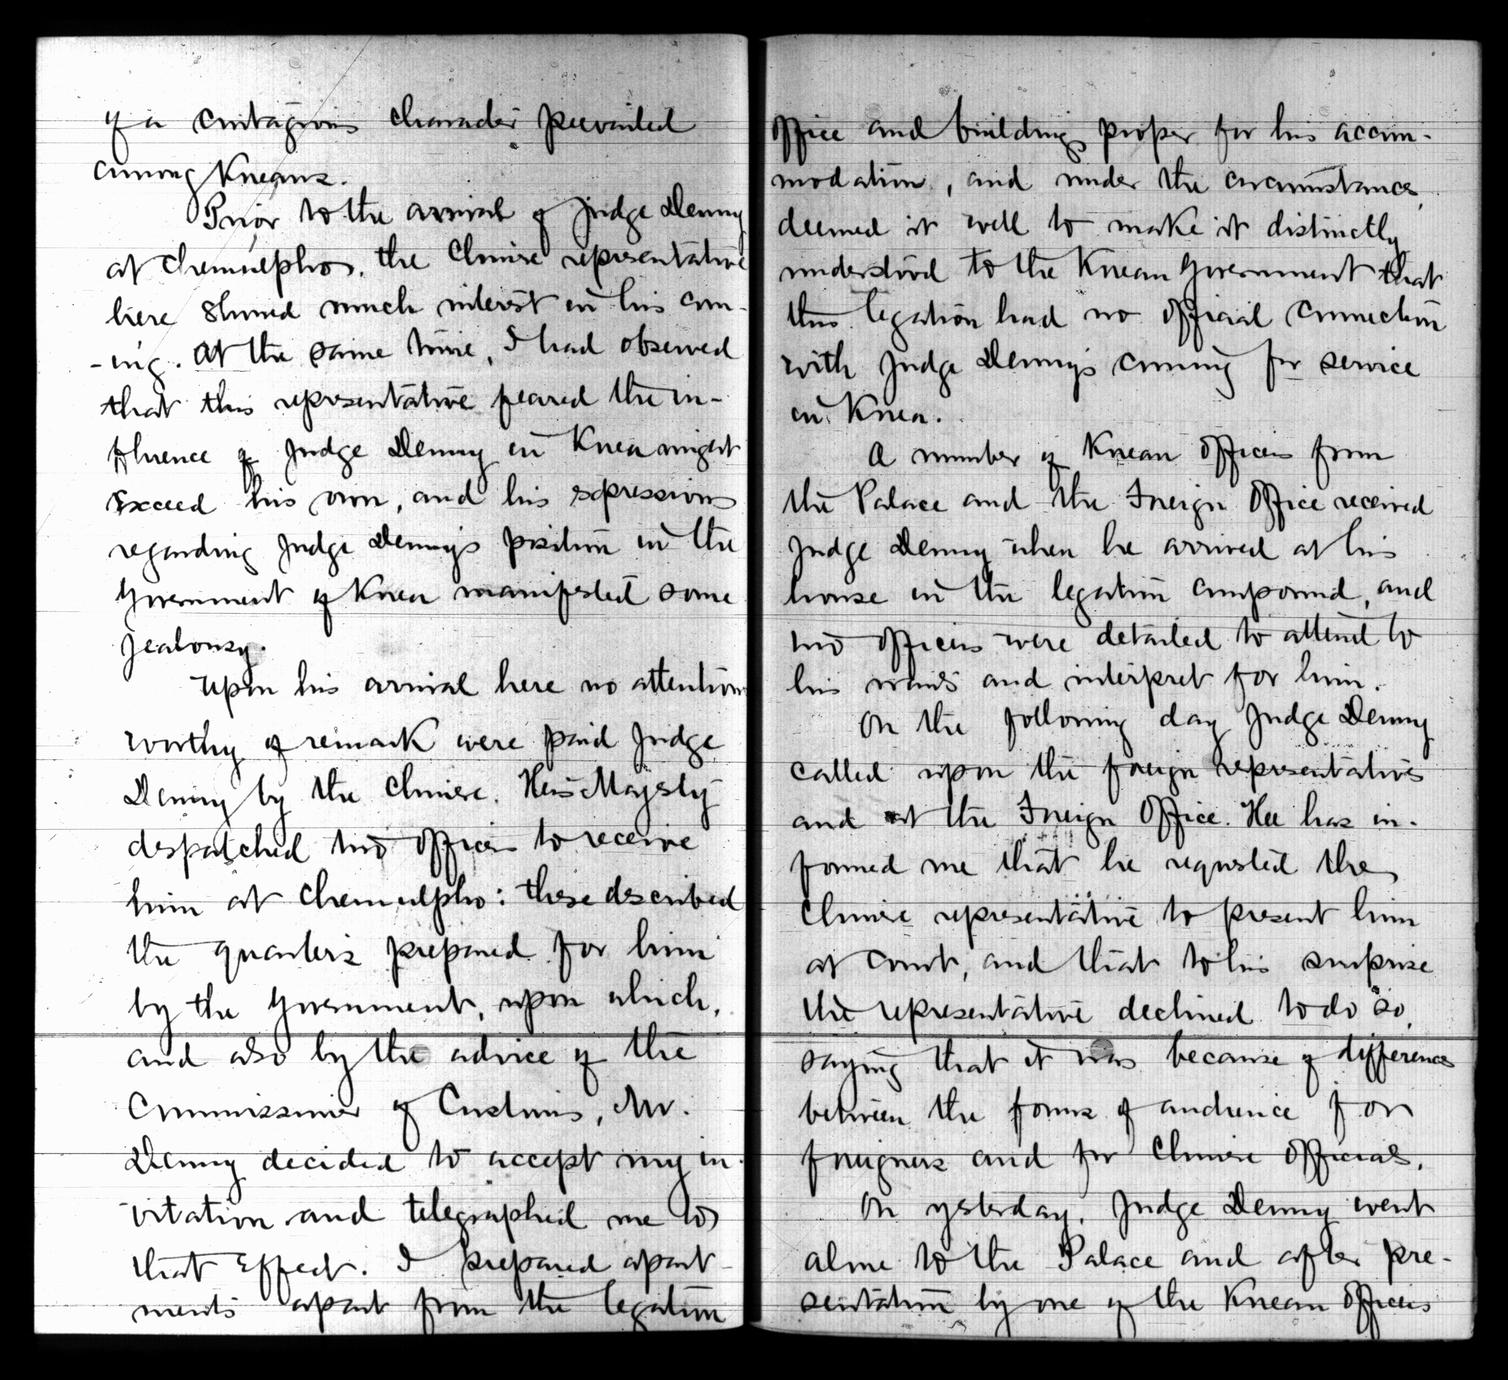 of a contagious character prevailed
among Koreans.
Prior to the arrival of Judge Denny
at Chemulpho, the Chinese representative
here showed much interest in his com-
-ing. At the same time, I had observed
that this representative feared the in-
fluence of Judge Denny in Korea might
exceed his own, and his expressions
regarding Judge Denny's position in the
Government of Korea manifested some
jealousy.
Upon his arrival here no attention
worthy of remark were paid Judge
Denny by the Chinese. His Majesty
despatched two officers to receive
him at Chemulpho: these described
the quarters prepared for him
by the Government, upon which,
and also by the advice of the
Commissioner of Customs, Mr.
Denny decided to accept my in-
vitation and telegraphed me to
that effect. I prepared apart-
ments apart from the legation
office and building proper for his accom-
modation, and under the circumstances,
deemed it well to make it distinctly
understood to the Korean Government that
this legation had no official connection
with Judge Denny's coming for service
in Korea.
A number of Korean officers from
the Palace and the Foreign Office received
Judge Denny when he arrived at his
house in the legation compound, and
two officers were detailed to attend to
his wants and interpret for him.
On the following day Judge Denny
called upon the foreign representatives
and at the Foreign Office. He has in-
formed me that he requested the
Chinese representative to present him
at court, and that to his surprise
the representative declined to do so,
saying that it was because of difference
between the forms of audience for
foreigners and for Chinese Officials.
On yesterday, Judge Denny went
alone to the Palace and after pre-
sentation by one of the Korean Officers